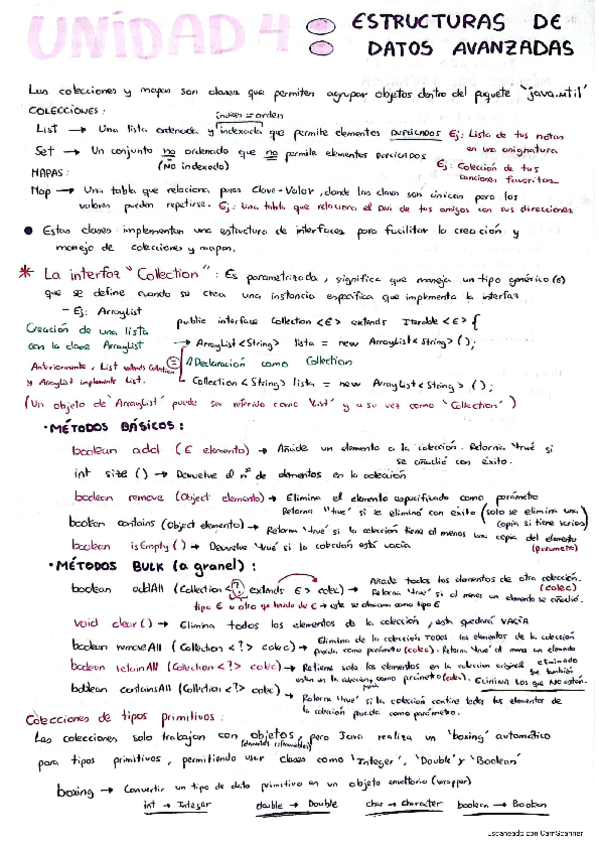 UNIDAD 4 ESTRUCTURAS DE
DATOS AVANZADAS
Las colecciones y mapas son clases que permiten agrupar objetos dentro del paquete 'java.util'
COLECCIONES:
index = orden
List → Una lista ordenada y indexada que permite elementos DUPLICADOS Ej: Lista de tus notas
en una asignatura
Set → Un conjunto no ordenado que no permite elementos DUPLICADOS
(NO indexado)
Ej: Colección de tus
canciones favoritas
MAPAS:
Map → Una tabla que relaciona pares Clave-Valor, donde las claves son únicas pero los
valores pueden repetirse. Ej: Una tabla que relaciona el DNI de tus amigos con sus direcciones
Estas clases implementan una estructura de interfaces para facilitar la creación y
manejo de colecciones y mapas.
* La interfaz "Collection": Es parametrizada, significa que maneja un tipo genérico (e)
que se define cuando se crea una instancia específica que implementa la interfaz
- Ej: ArrayList
public interface Collection <E> extends Iterable <E> {
Creación de una lista
con la clase ArrayList
→ ArrayList <String> lista = new ArrayList <String> ();
Anteriormente, List extends Collection
y ArrayList implementa List.
// Declaración como Collection
Collection <String> lista = new ArrayList <String> ();
(Un objeto de 'ArrayList' puede ser referido como 'List' y a su vez como 'Collection')
• MÉTODOS BÁSICOS:
boolean add (E elemento) → Añade un elemento a la colección. Retorna 'true' si
se añadió con éxito.
int size () → Devuelve el nº de elementos en la colección
boolean remove (Object elemento) → Elimina el elemento especificando como parámetro
Retorna 'true' si se eliminó con éxito (solo se elimina una
copia si tiene varias)
boolean contains (Object elemento) → Retorna 'true' si la colección tiene al menos una copia del elemento
(parámetro)
boolean isEmpty () → Devuelve 'true' si la colección está vacía
• MÉTODOS BULK (a granel):
boolean addAll (Collection <? extends E> colec) → Añade todos los elementos de otra colección.
(colec)
Retorna 'true' si al menos un elemento se añadió.
tipo E u otro que hereda de E → este se almacena como tipo E
void clear () → Elimina todos los elementos de la colección, esta quedará VACÍA
boolean removeAll (Collection <?> colec) → Elimina de la colección TODOS los elementos de la colección
pasada como parámetro (colec). Retorna 'true' al menos un elemento
eliminado
boolean retainAll (Collection <?> colec) → Retiene solo los elementos en la colección original que también
están en la colección como parámetro (colec). ELIMINA LOS QUE NO ESTÁN.
boolean containsAll (Collection <?> colec) → Retorna 'true' si la colección contiene todos los elementos de
la colección puesta como parámetro.
Colecciones de tipos primitivos:
Las colecciones solo trabajan con objetos, pero Java realiza un 'boxing' automático
para tipos primitivos, permitiendo usar clases como 'Integer', 'Double' y 'Boolean'
boxing → Convertir un tipo de dato primitivo en un objeto envoltorio (wrapper)
int → Integer double → Double char → Character boolean → Boolean
Escaneado con CamScanner